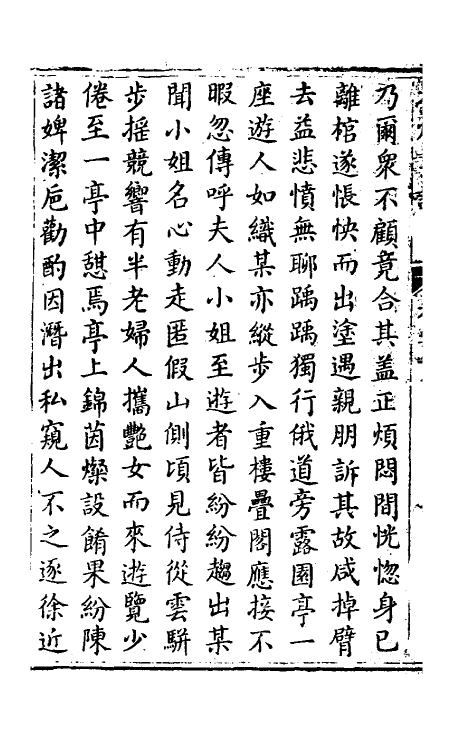 乃爾衆不顧竟合其盖正煩悶間恍惚身已
離棺遂悵怏而出塗遇親朋訴其故咸掉臂
去益悲憤無聊踽踽獨行俄道旁露園亭一
座遊人如織某亦縱步入重樓疊閣應接不
暇忽傳呼夫人小姐至遊者皆紛紛趨出某
聞小姐名心動走匿假山側頃見侍從雲駢
步摇競響有半老婦人攜艷女而來遊覽少
倦至一亭中憇焉亭上錦茵燦設餚果紛陳
諸婢潔巵勸酌因潛出私窺人不之逐徐近